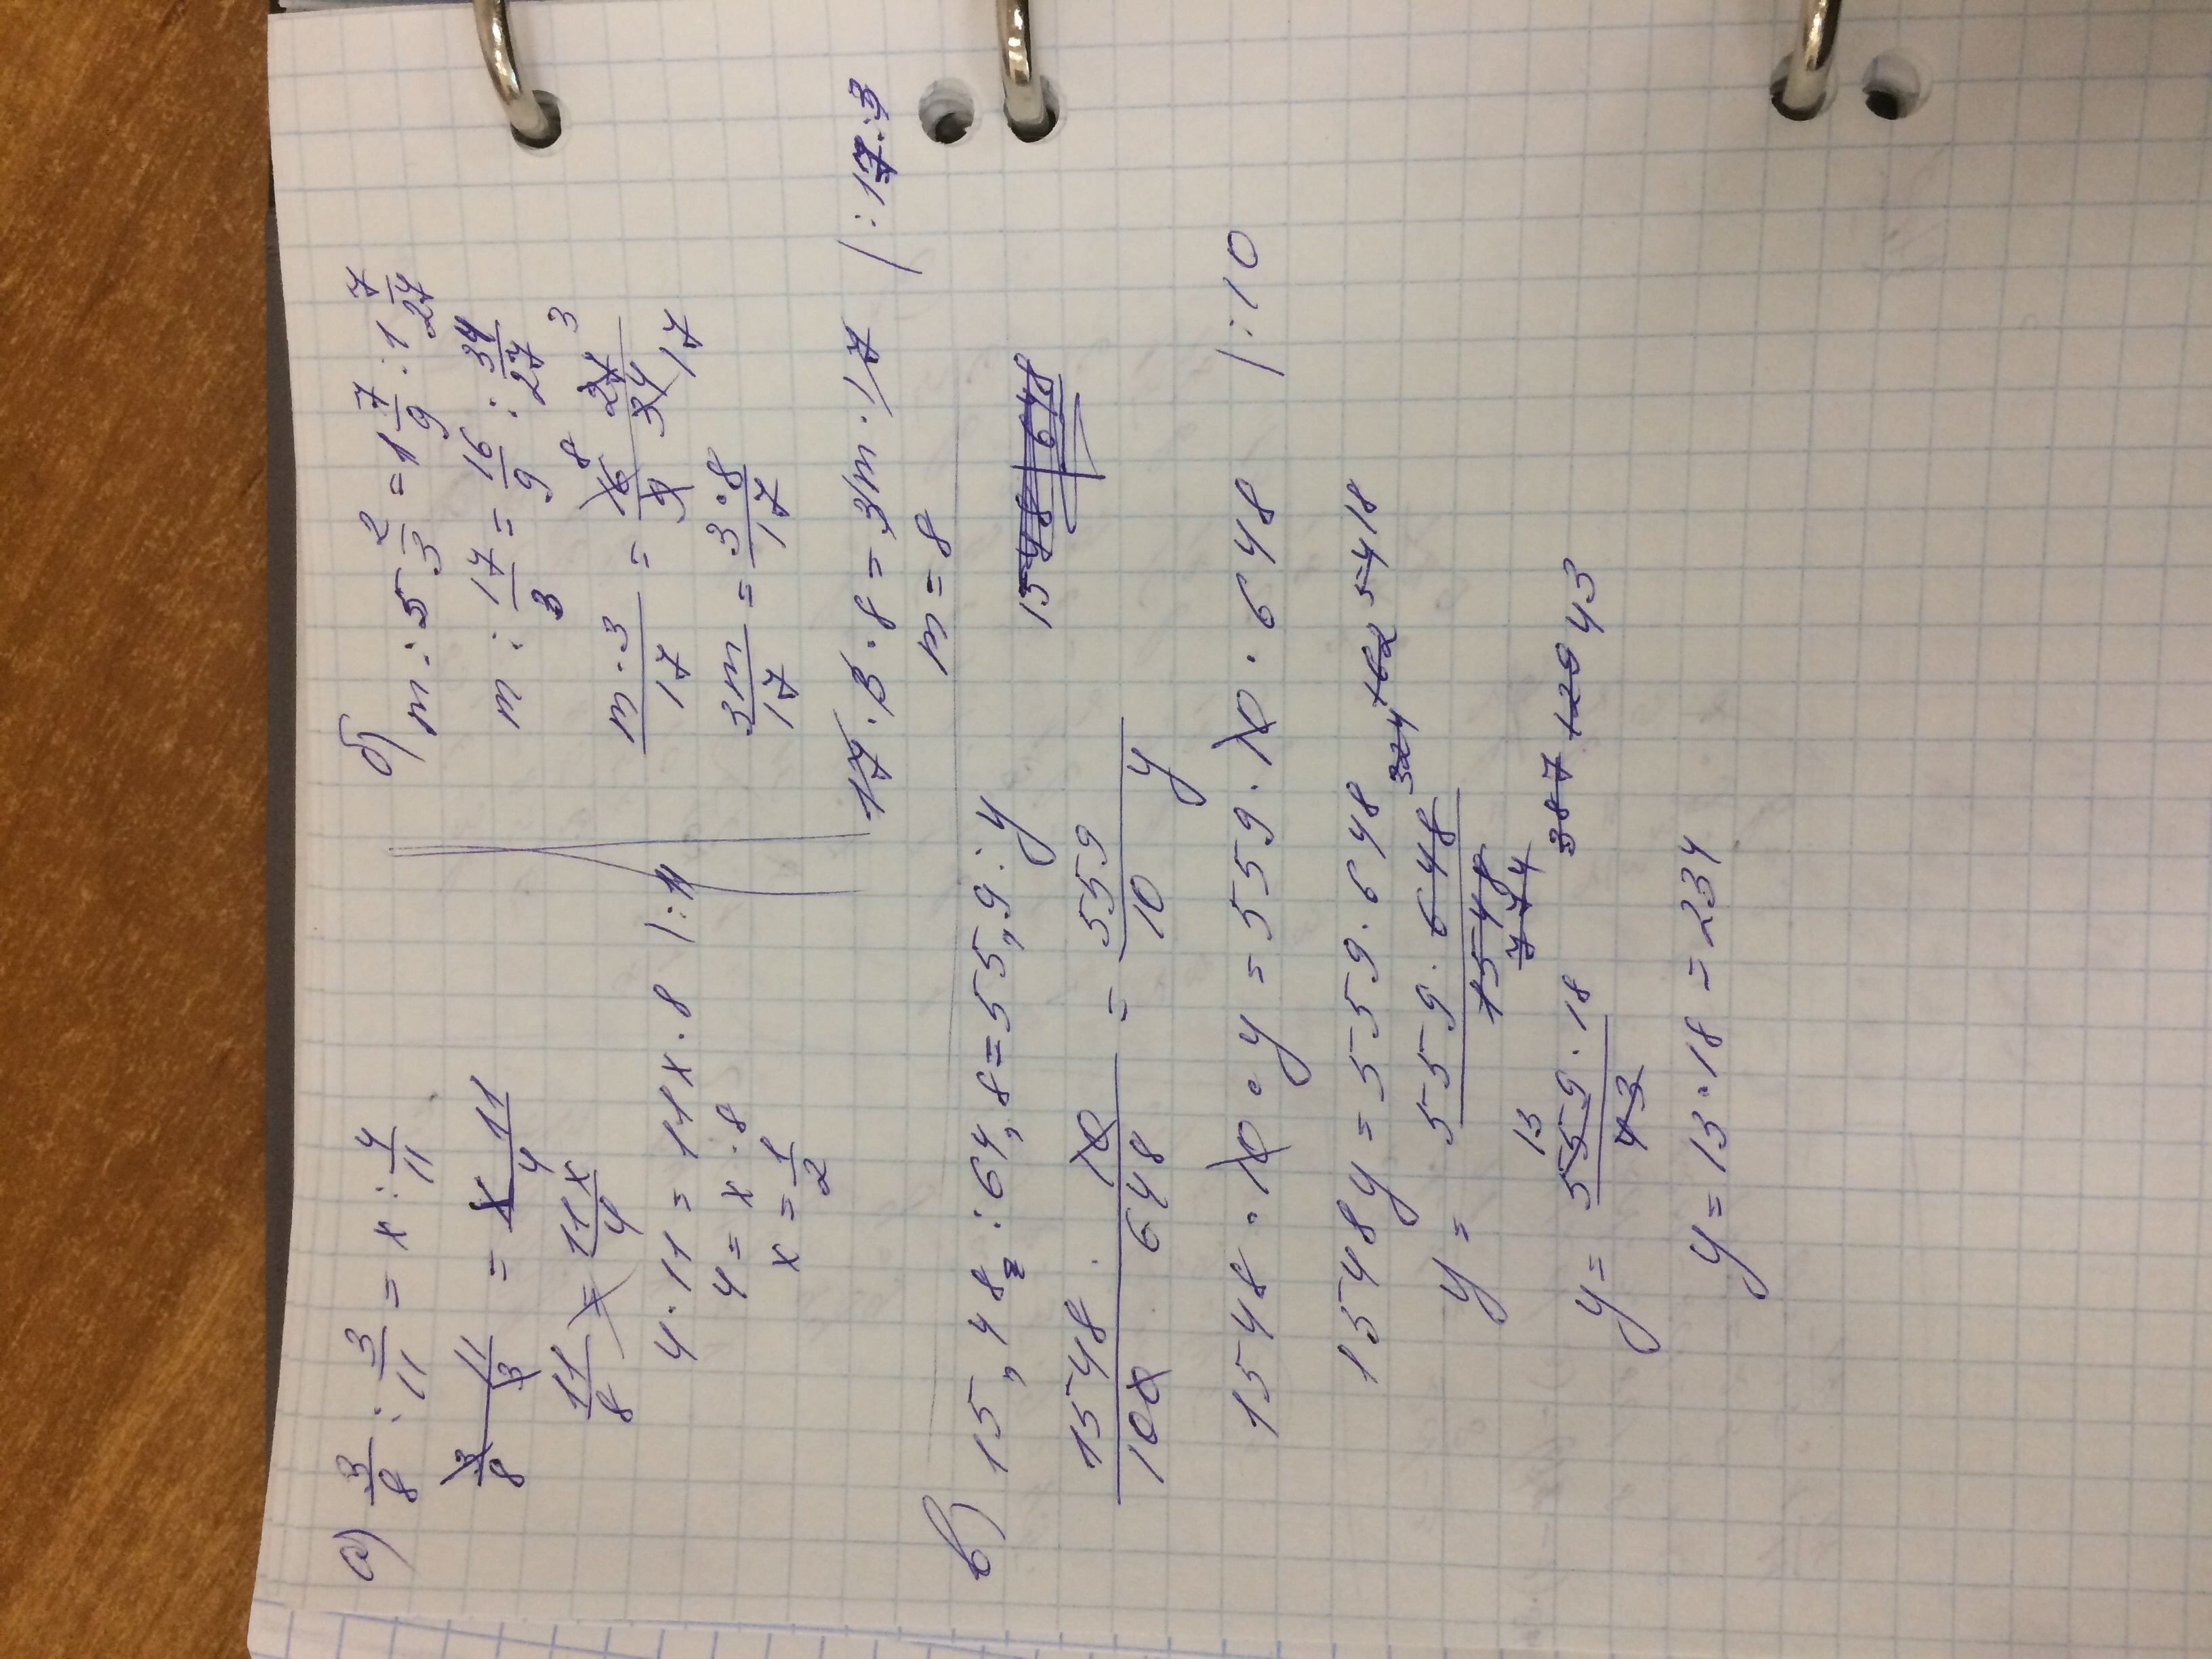 а) 3/8 : 3/11 = x : 4/11
3/8 · 11/3 = x · 11/4
11/8 = 11x/4
4 · 11 = 11x · 8 | : 11
4 = x · 8
x = 1/2
б) m : 5 2/3 = 1 7/9 : 1 7/27
m : 17/3 = 16/9 : 34/27
m · 3/17 = 16/9 8 27/34 3 17
3m/17 = 3 · 8/17
17 · 3 · 8 = 3m · 17 | : 17 · 3
m = 8
в) 15,48 : 64,8 = 55,9 : y
1548 648
1548/100 · 10/648 = 559/10 y
1548 · 10 · y = 559 · 10 · 648 | : 10
1548y = 559 · 648
y = 559 · 648/1548 324 162 54 18
774 387 129 43
y = 559 · 18/43 13
y = 13 · 18 = 234